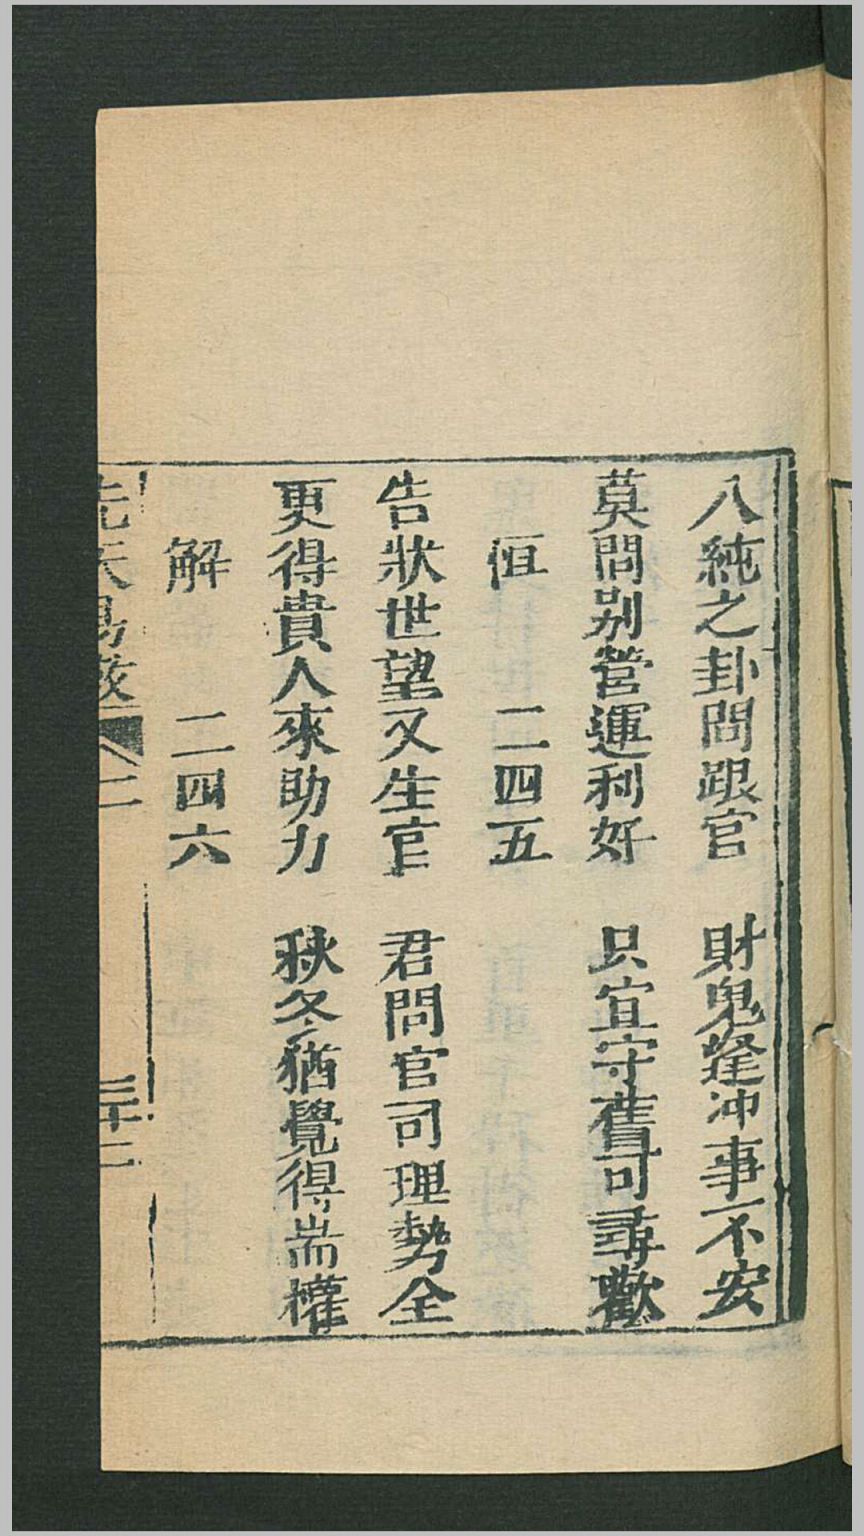 八純之卦問跟官　財鬼逢冲事不安
莫問别營運利好　只宜守舊可尋歡
恒　二四五
告狀世望又生官　君問官司理勢全
更得貴人來助力　秋冬猶覺得耑權
解　二四六
先天易數　二　三十二